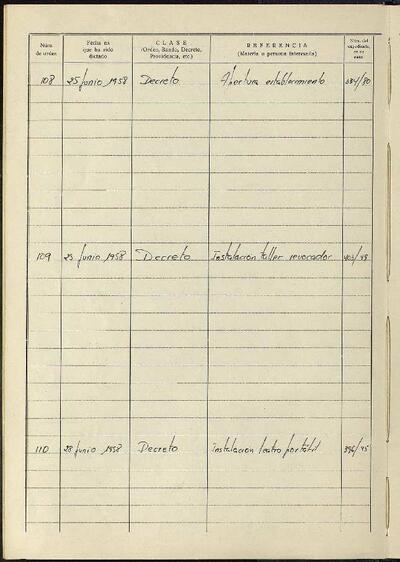 Núm. de orden | Fecha en que ha sido dictado | CLASE (Orden, Bando, Decreto, Providencia, etc.) | REFERENCIA (Materia o persona interesada) | Núm. del expediente, en su caso
108 | 25 junio 1958 | Decreto | Apertura establecimiento
109 | 25 junio 1958 | Decreto | Instalación taller
110 | 28 junio 1958 | Decreto | Instalación teatro portátil